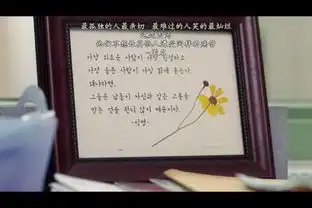 最孤独的人最亲切 最难过的人笑的最灿烂
他们不想让其他人遭受同样的痛苦
가장 외로운 사람이 가장 친절하고
가장 슬픈 사람이 가장 밝게 웃는다.
왜냐하면,
그들은 남들이 자신과 같은 고통을
받는 것을 원치 않기 때문이다.
- 익명 -